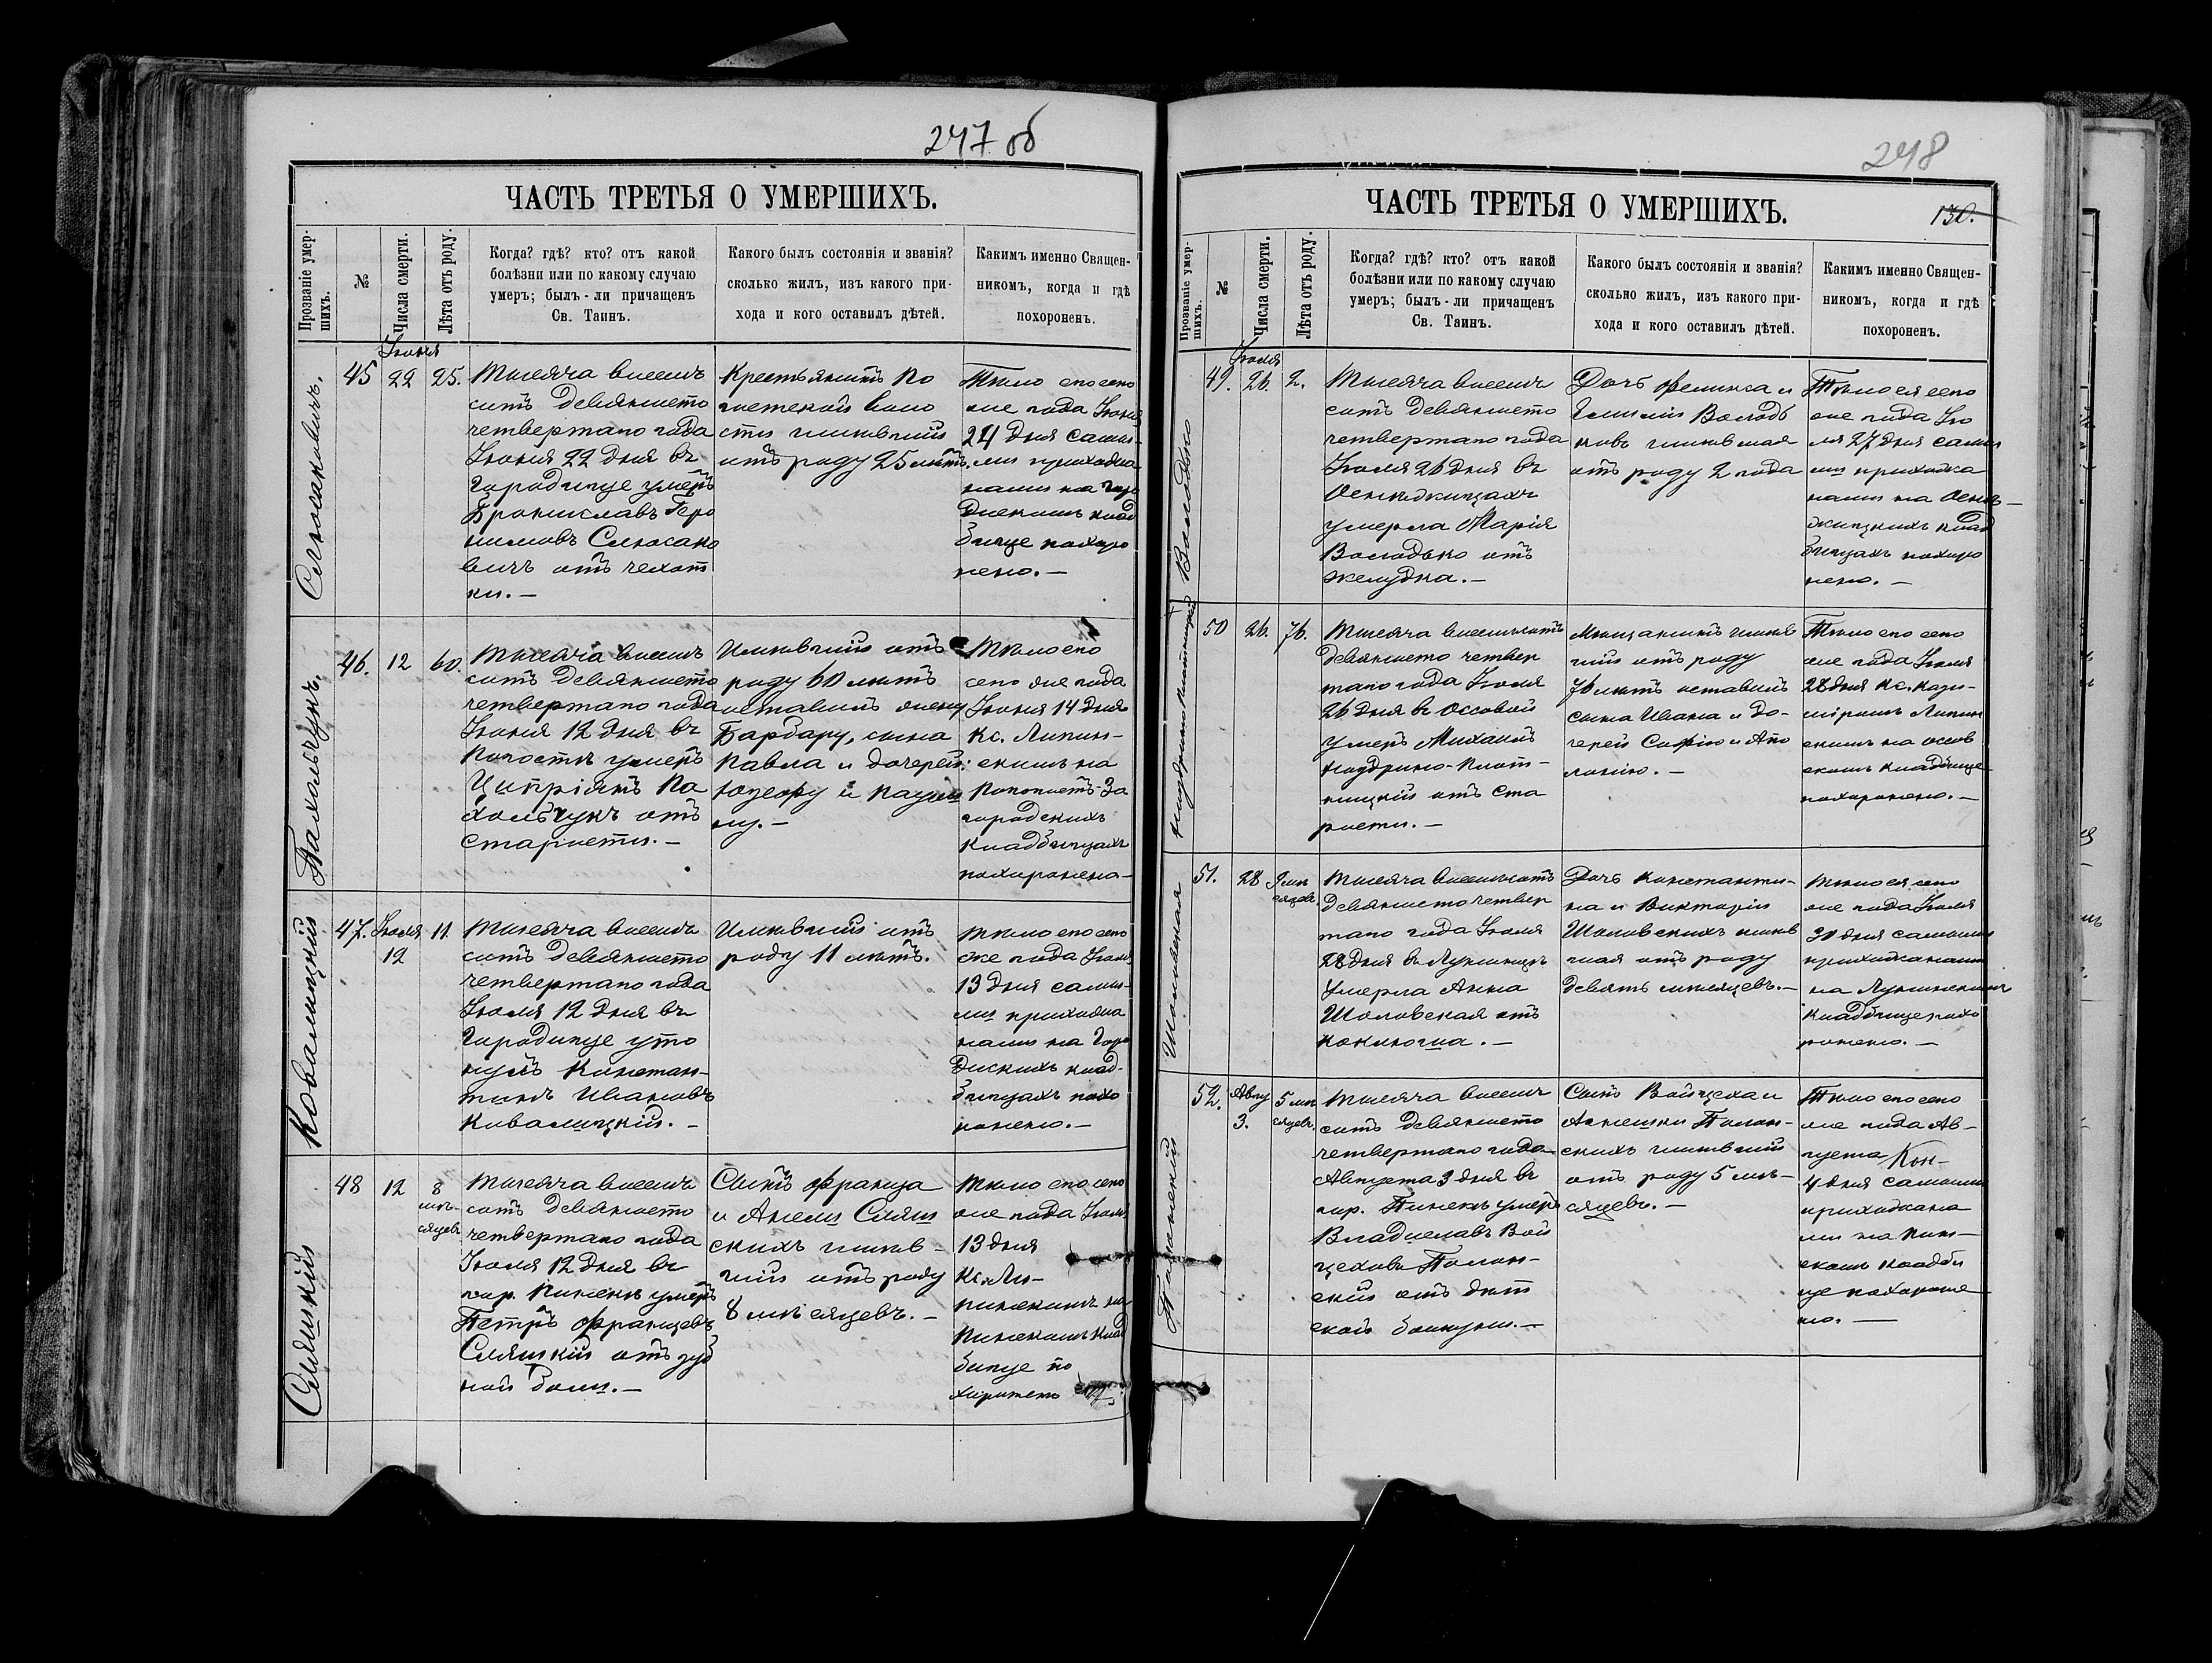 247 об
ЧАСТЬ ТРЕТЬЯ О УМЕРШИХЪ.
Прозваніе умер-
шихъ.
№
Числа смерти.
Лѣта отъ роду.
Когда? гдѣ? кто? отъ какой
болѣзни или по какому случаю
умеръ; былъ-ли причащенъ
Св. Таинъ.
Какого былъ состоянія и званія?
сколько жилъ, изъ какого при-
хода и кого оставилъ дѣтей.
Какимъ именно Священ-
никомъ, когда и гдѣ
похороненъ.
45
Іюня
22
25.
Тысяча восемь
сотъ девяносто
четвертаго года
Іюня 22 дня въ
Городище умеръ
Брониславъ Геро
нимовъ Слюсако
вичъ отъ чахот
ки.—
Крестьянинъ По
гостской воло
сти имѣвшій
отъ роду 25 лѣтъ.
Тѣло его сего
же года Іюня
24 дня сами-
ми прихожа
нами на Горо
дискомъ клад
бище похоро
нено.—
Пахольчукъ.
46.
12
60.
Тысяча восемь
сотъ девяносто
четвертаго года
Іюня 12 дня въ
Погостѣ умеръ
Ципріянъ Па
хольчукъ отъ
старости.—
Имѣвшій отъ
роду 60 лѣтъ
оставилъ жену
Барбару, сына
Павла и дочерей:
Юзефу и Паули
ну.—
Тѣло его
сего же года
Іюня 14 дня
Кс. Липин-
скимъ на
Погостъ-За
городскихъ
кладбищахъ
похоронено—
Ковалицкій
47.
Іюля
12
11.
Тысяча восемь
сотъ девяносто
четвертаго года
Іюля 12 дня въ
Городище уто
нулъ Констан-
тинъ Ивановъ
Ковалицкій.—
Имѣвшій отъ
роду 11 лѣтъ.
Тѣло его сего
же года Іюля
13 дня сами-
ми прихожа
нами на Горо
дискихъ клад-
бищахъ похо
ронено.—
48
12
8
мѣ-
сяцевъ
Тысяча восемь
сотъ девяносто
четвертаго года
Іюля 12 дня въ
гор. Пинскѣ умеръ
Петръ Францевъ
отъ зуб
ной боли.—
Сынъ Франца
и Анели
скихъ имѣв-
шій отъ роду
8 мѣсяцевъ.—
Тѣло его сего
же года Іюля
13 дня
Кс. Ли-
пинскимъ на
Пинскомъ клад
бище по
хоронено
248
130.
ЧАСТЬ ТРЕТЬЯ О УМЕРШИХЪ.
Прозваніе умер-
шихъ.
№
Числа смерти.
Лѣта отъ роду.
Когда? гдѣ? кто? отъ какой
болѣзни или по какому случаю
умеръ; былъ-ли причащенъ
Св. Таинъ.
Какого былъ состоянія и званія?
сколько жилъ, изъ какого при-
хода и кого оставилъ дѣтей.
Какимъ именно Священ-
никомъ, когда и гдѣ
похороненъ.
Володько
49.
Іюля
26.
2.
Тысяча восемь
сотъ девяносто
четвертаго года
Іюля 26 дня въ
умерла Марія
Володько отъ
желудка.—
Дочь Феликса и
Эмиліи Володь
ковъ имѣвшая
отъ роду 2 года
Тѣло ея сего
же года Ію
ля 27 дня сами
ми прихожа
нами на
клад
бищахъ похоро
нено.—
50
26.
76.
Тысяча восемьсотъ
девяносто четвер
таго года Іюля
26 дня въ Оссовой
умеръ Михаилъ
ницкій отъ ста
рости.—
Мѣщанинъ имѣв
шій отъ роду
76 лѣтъ оставилъ
сына Ивана и до-
черей Софію и Апо
лонію.—
Тѣло его сего
же года Іюля
28 дня Кс. Кази-
міромъ Липин
скимъ на Оссов
скомъ кладбище
похоронено.—
51.
28
9 мѣ
сяцевъ
Тысяча восемьсотъ
девяносто четвер
таго года Іюля
28 дня въ
умерла Анна
Шоловская отъ
коклюша.—
Дочь Константи-
на и Викторіи
Шоловскихъ имѣв
шая отъ роду
девять мѣсяцевъ.—
Тѣло ея сего
же года Іюля
30 дня самими
прихожанами
на
кладбище похо
ронено.—
52.
Авгу
3.
5 мѣ
сяцевъ.
Тысяча восемь
сотъ девяносто
четвертаго года
Августа 3 дня въ
гор. Пинскѣ умеръ
Владиславъ Вой
цеховъ Полон-
скій отъ дѣт
ской
Сынъ Войцеха и
Агнешки Полон-
скихъ имѣвшій
отъ роду 5 мѣ-
сяцевъ.—
Тѣло его сего
же года Ав-
густа
4 дня самими
прихожана
ми на Пин-
скомъ кладби
ще похороне
но.—